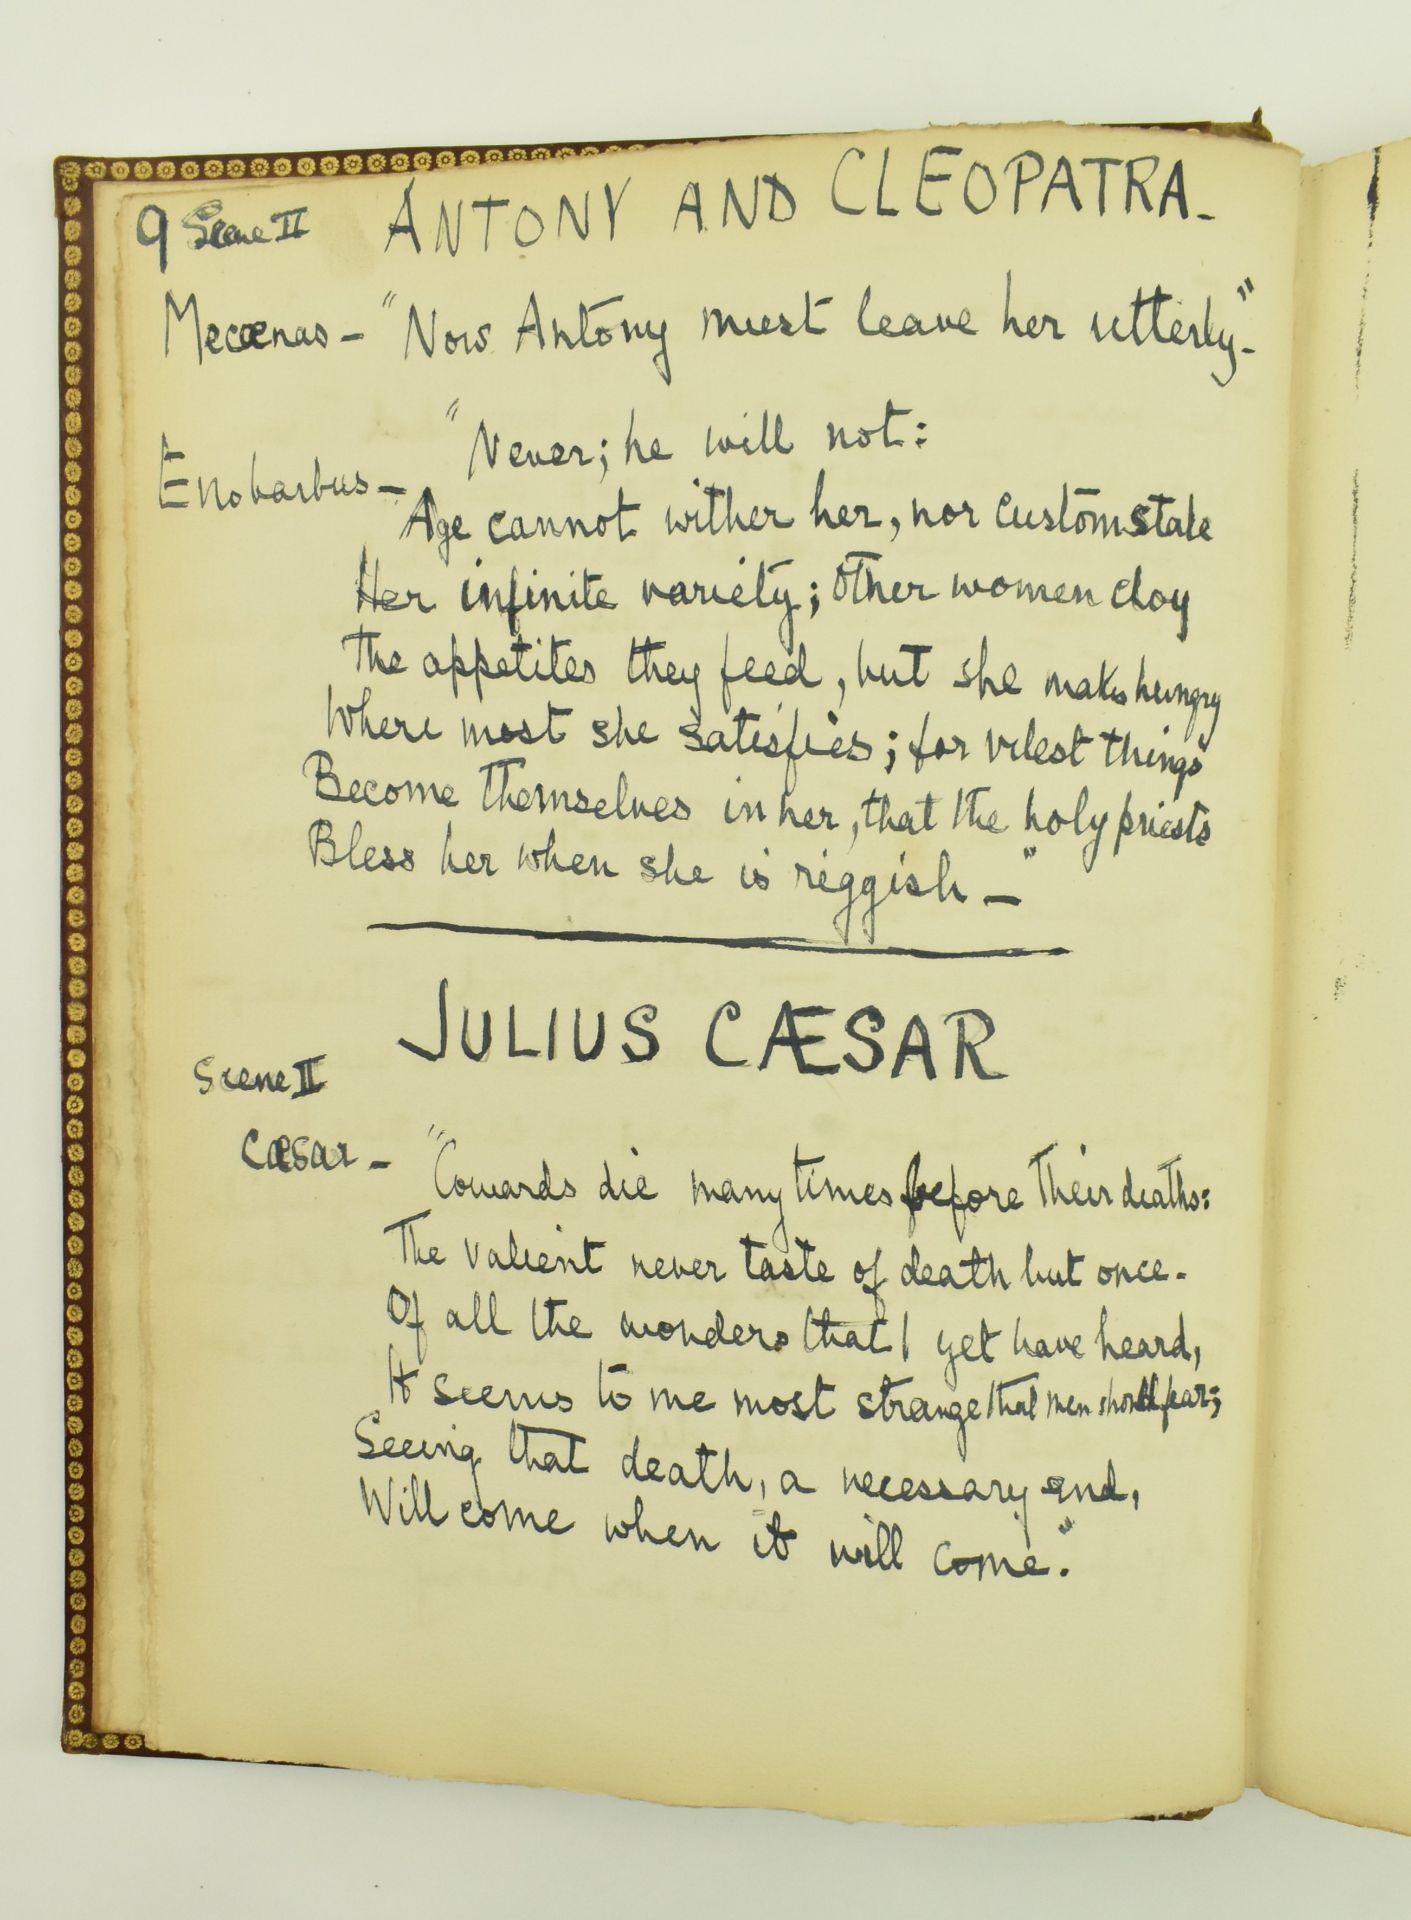 9 Scene II ANTONY AND CLEOPATRA-
Mecænas - "Now Antony must leave her utterly"-
"Never; he will not:
Enobarbus -
Age cannot wither her, nor custom stale
Her infinite variety; other women cloy
The appetites they feed, but she makes hungry
Where most she satisfies; for vilest things
Become themselves in her, that the holy priests
Bless her when she is riggish - "
JULIUS CÆSAR
Scene II
Cæsar - "Cowards die many times before their deaths:
The valient never taste of death but once.
Of all the wonders that I yet have heard,
It seems to me most strange that men should fear;
Seeing that death, a necessary end,
Will come when it will come."